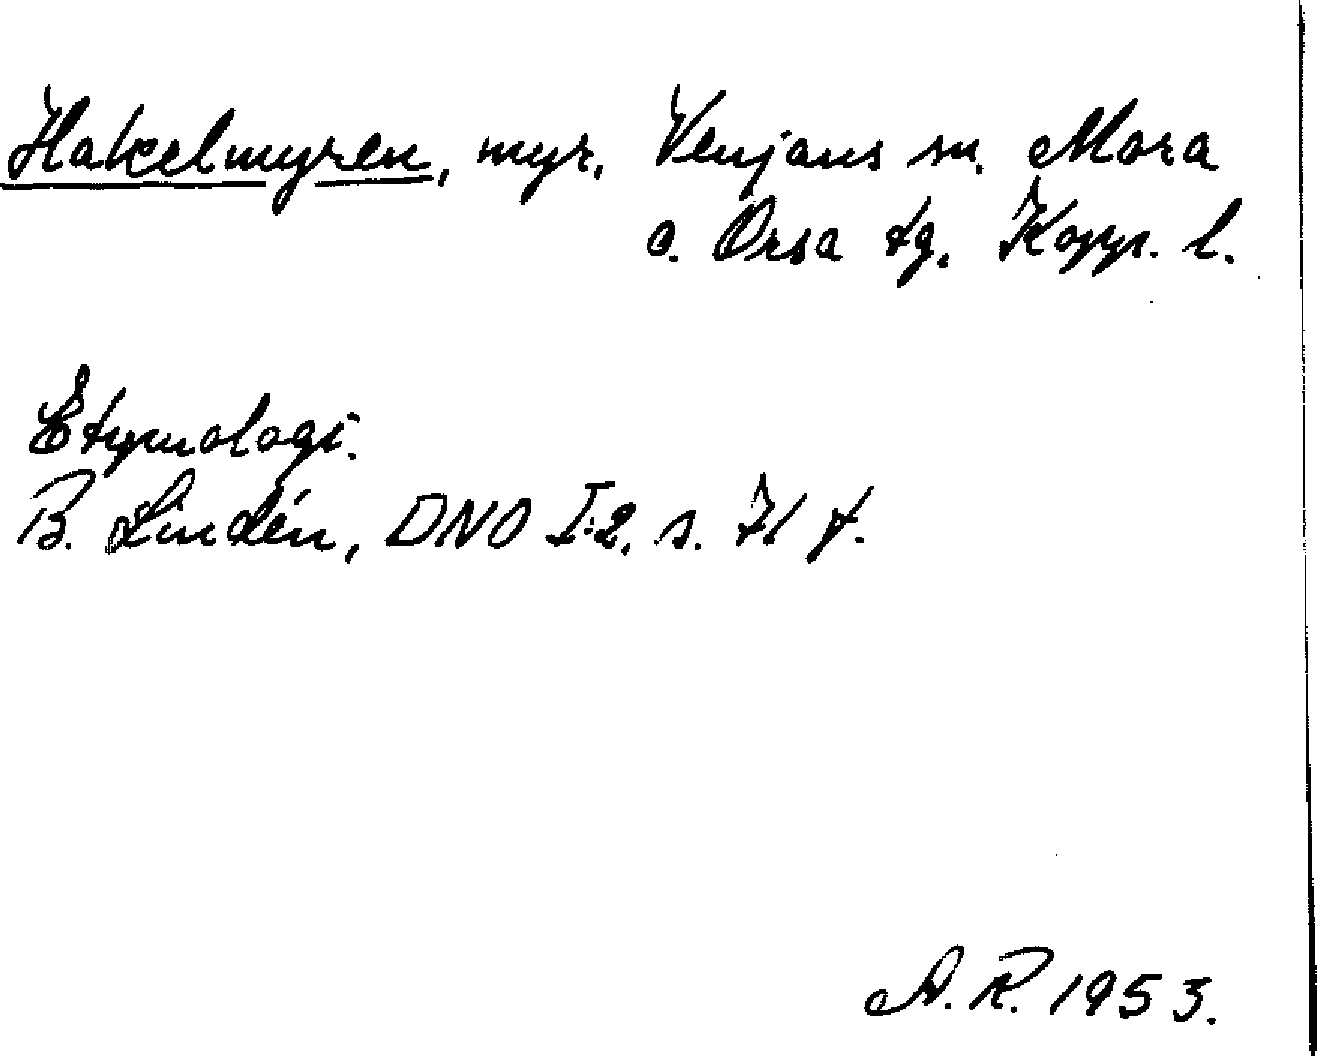 Hakelmyren, myr, Venjans sn. Mora
o. Orsa tg. Kopp. l.
Etymologi.
B. Lindén, DNO I:2, s. 71 f.
A. R. 1953.